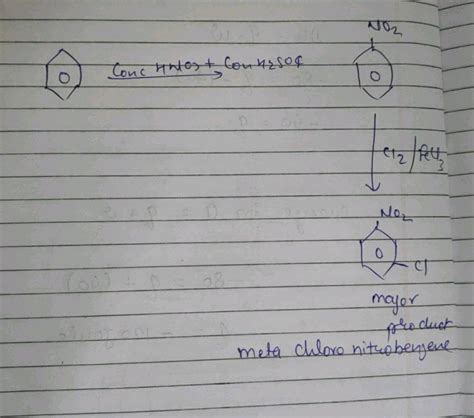 NO2
Conc HNO3 + Con H2SO4
Cl2/FeCl3
NO2
Cl
major
product
meta chloro nitrobenzene